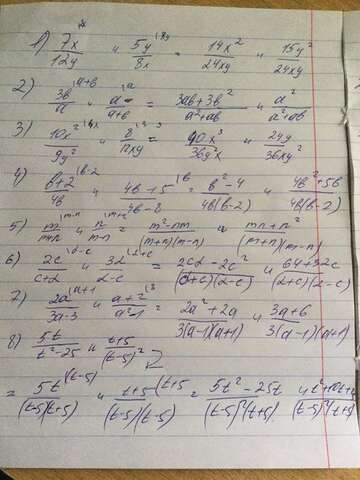 1) 7x/12y и 5y/8x = 14x²/24xy и 15y²/24xy
2) 3b/a |a+b и a/a+b |a = 3ab+3b²/a²+ab и a²/a²+ab
3) 10x²/9y² |4x и 8/12xy = 40x³/36y²x и 24y/36xy²
4) b+2/4b |b-2 и 4b+5/4b-8 |b = b²-4/4b(b-2) и 4b²+5b/4b(b-2)
5) m/m+n |m-n и n/m-n |m+n = m²-nm/(m+n)(m-n) и mn+n²/(m+n)(m-n)
6) 2c/c+2 и 32/2-c |2+c = 2c2-2c²/(2+c)(2-c) и 64+32c/(2+c)(2-c)
7) 2a/3a-3 |a+1 и a+2/a²-1 |3 = 2a²+2a/3(a-1)(a+1) и 3a+6/3(a-1)(a+1)
8) 5t/t²-25 и t+5/(t-5)²
= 5t/(t-5)(t+5) |(t-5) и t+5/(t-5)(t-5) |(t+5 = 5t²-25t/(t-5)²(t+5) и t²+10t+/(t-5)²(t+5